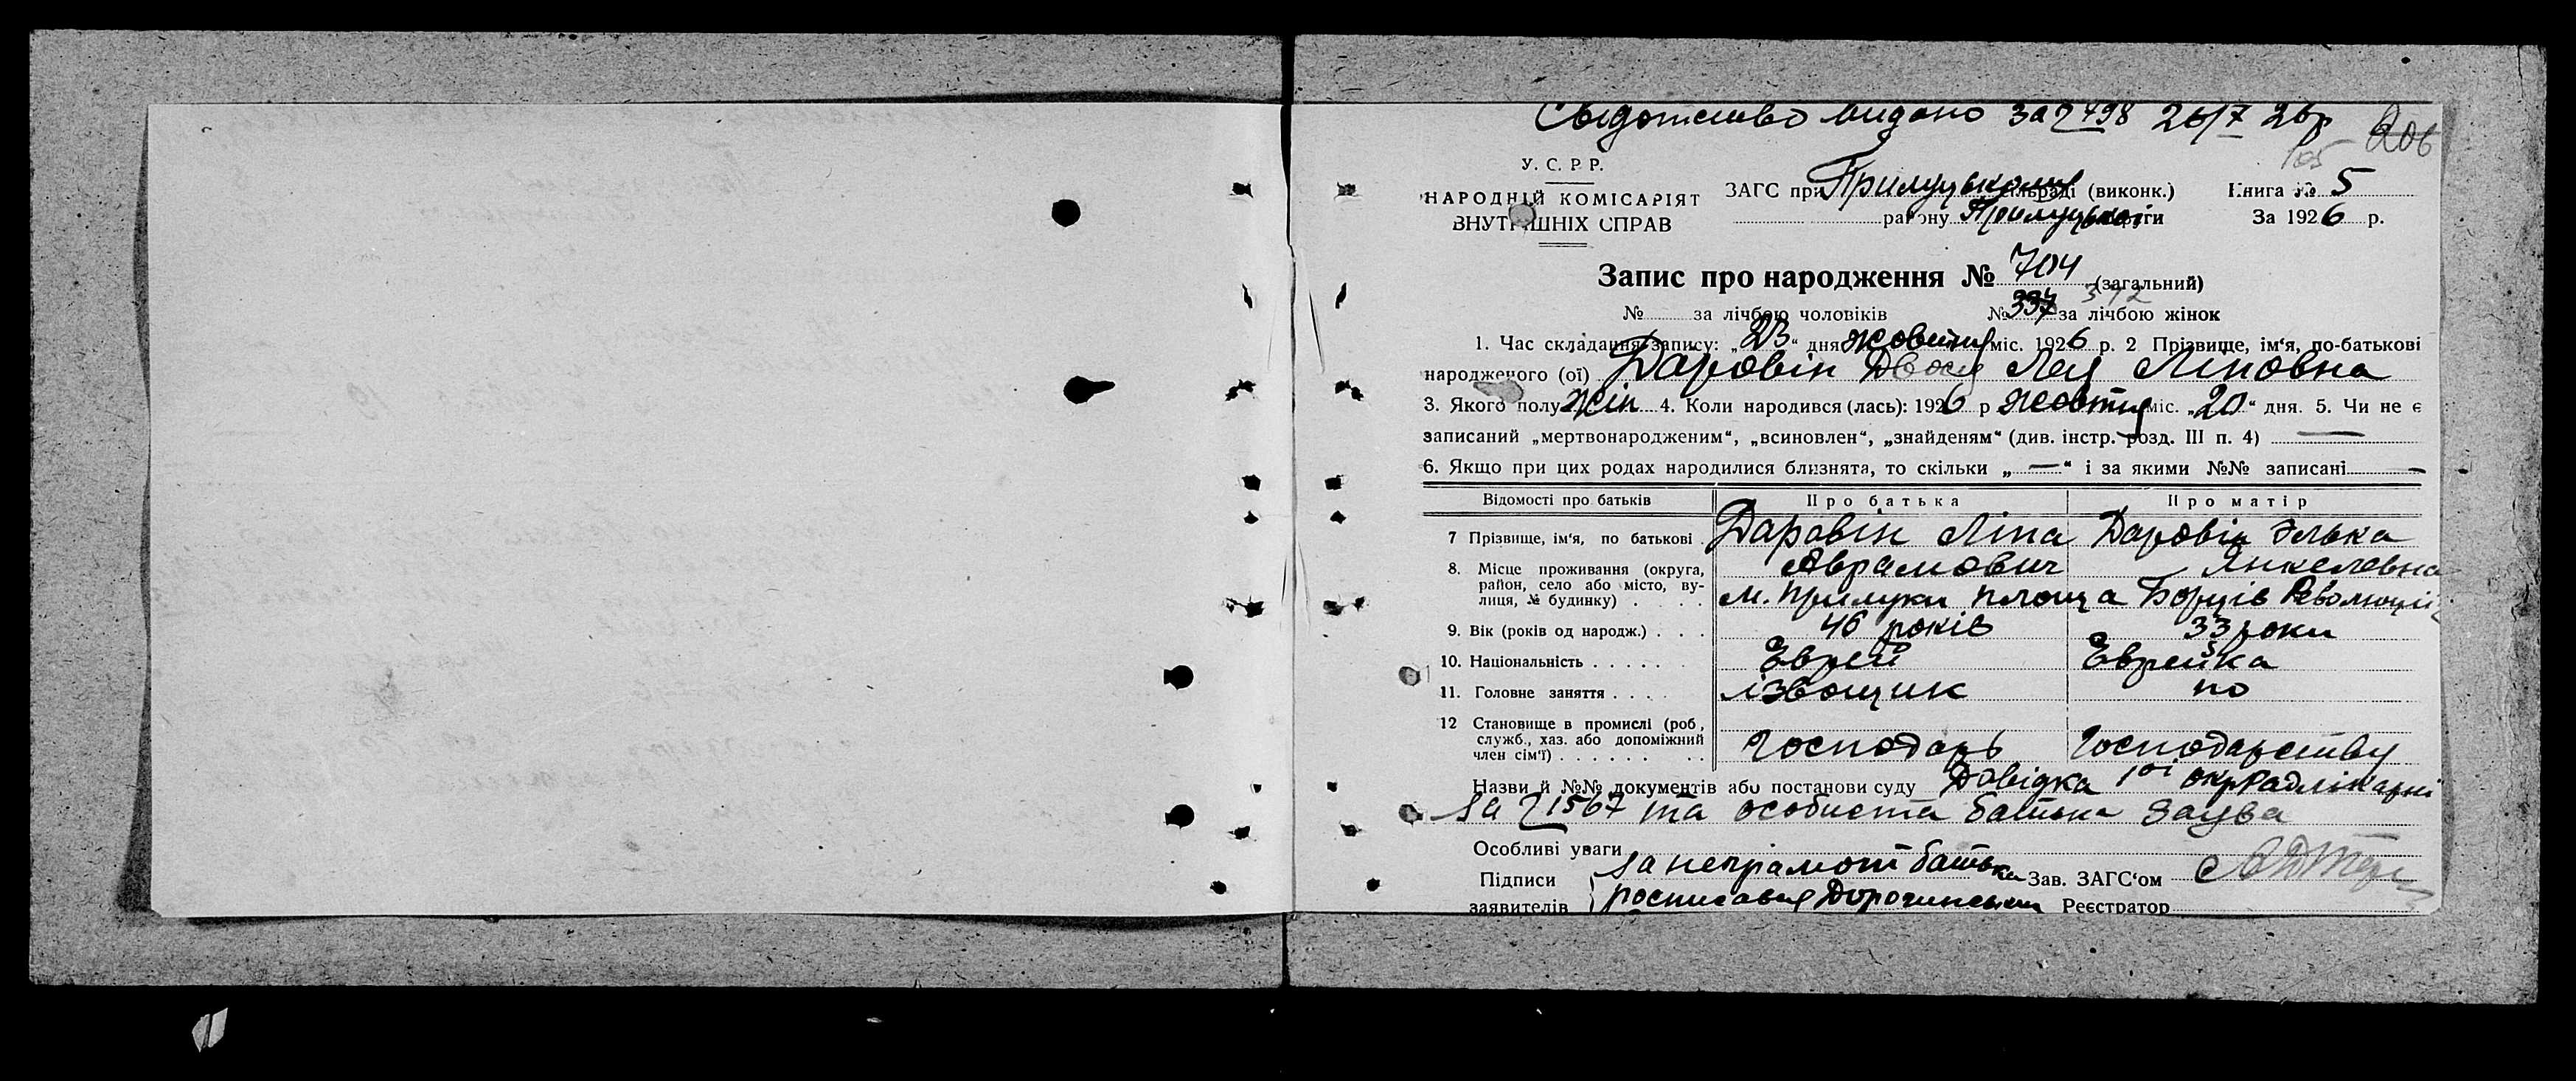 Свідотство видано за № 498 26/X 26 р
206
105
У. С. Р. Р.
НАРОДНІЙ КОМІСАРІЯТ
ВНУТРІШНІХ СПРАВ
ЗАГС при Прилуцькому сільраді (виконк.)
району Прилуцької округи
Книга № 5
За 1926 р.
Запис про народження № 704 (загальний)
№ за лічбою чоловіків № 337 за лічбою жінок
1. Час складання запису: „23“ дня жовтня міс. 1926 р. 2 Прізвище, ім'я, по-батькові
народженого (ої) Даровін Двося Лея Ліповна
3. Якого полу жін 4. Коли народився (лась): 1926 р жовтня міс. „20“ дня. 5. Чи не є
записаний „мертвонародженим“, „всиновлен“, „знайденям“ (див. інстр. розд. III п. 4) —
6. Якщо при цих родах народилися близнята, то скільки „—“ і за якими №№ записані —
Відомості про батьків Про батька Про матір
7 Прізвище, ім'я, по батькові . Даровін Ліпа Аврамович Даровін Элька Янкелевна
8. Місце проживання (округа,
район, село або місто, ву-
лиця, № будинку) . . . . м. Прилуки площа Борців Революції
9. Вік (років од народж.) . . . 46 років 33 роки
10. Національність . . . . . Еврей Еврейка
11. Головне заняття . . . . ізвощик по
12 Становище в промислі (роб,
служб., хаз. або допоміжний
член сім'ї) . . . . . . . . Господарь Господарству
Назви й №№ документів або постанови суду Довідка 1ої окррадлікарні
за № 1567 та особиста батька заява
Особливі уваги
Підписи за неграмотн батька Зав. ЗАГС'ом
заявителів росписався Дорогинський Реєстратор